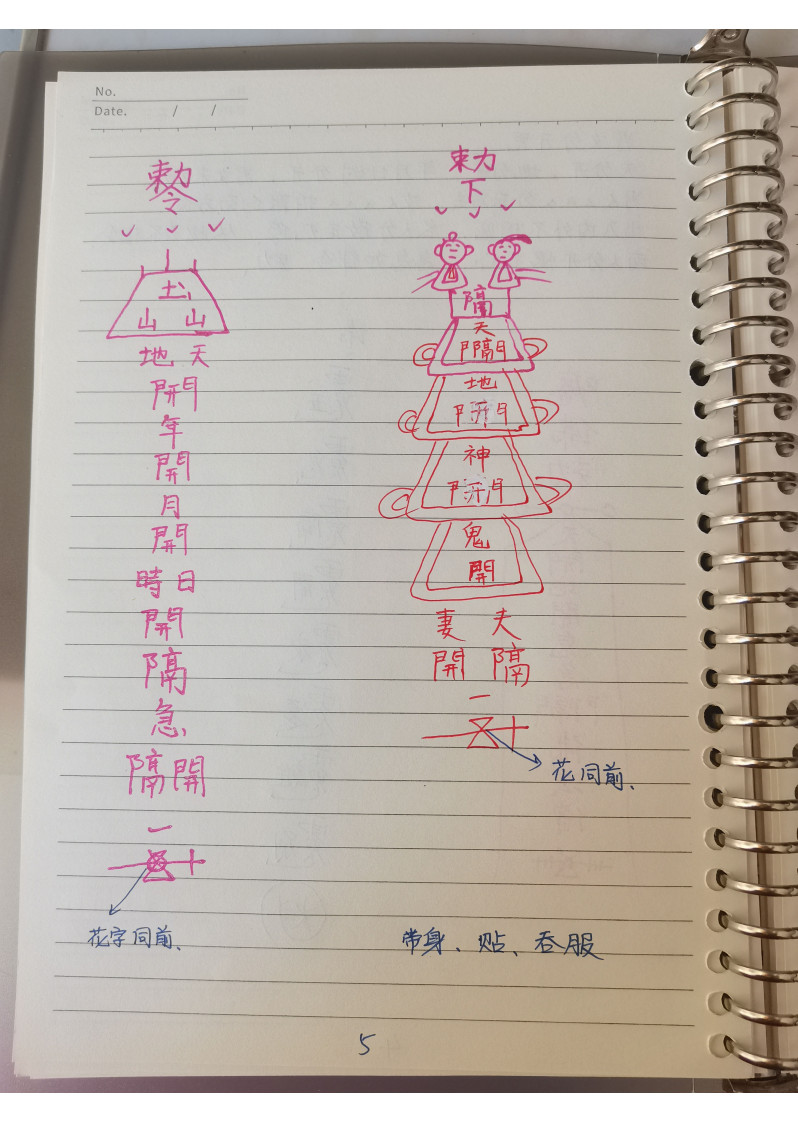 No.
Date. / /
敕令
土
山 山
地 天
開
年
開
月
開
時 日
開
隔
急
隔 開
一
十
花字同前、
敕
下
隔
天
隔
地
開
神
開
鬼
開
妻 夫
開 隔
一
十
花同前、
带身、贴、吞服
5